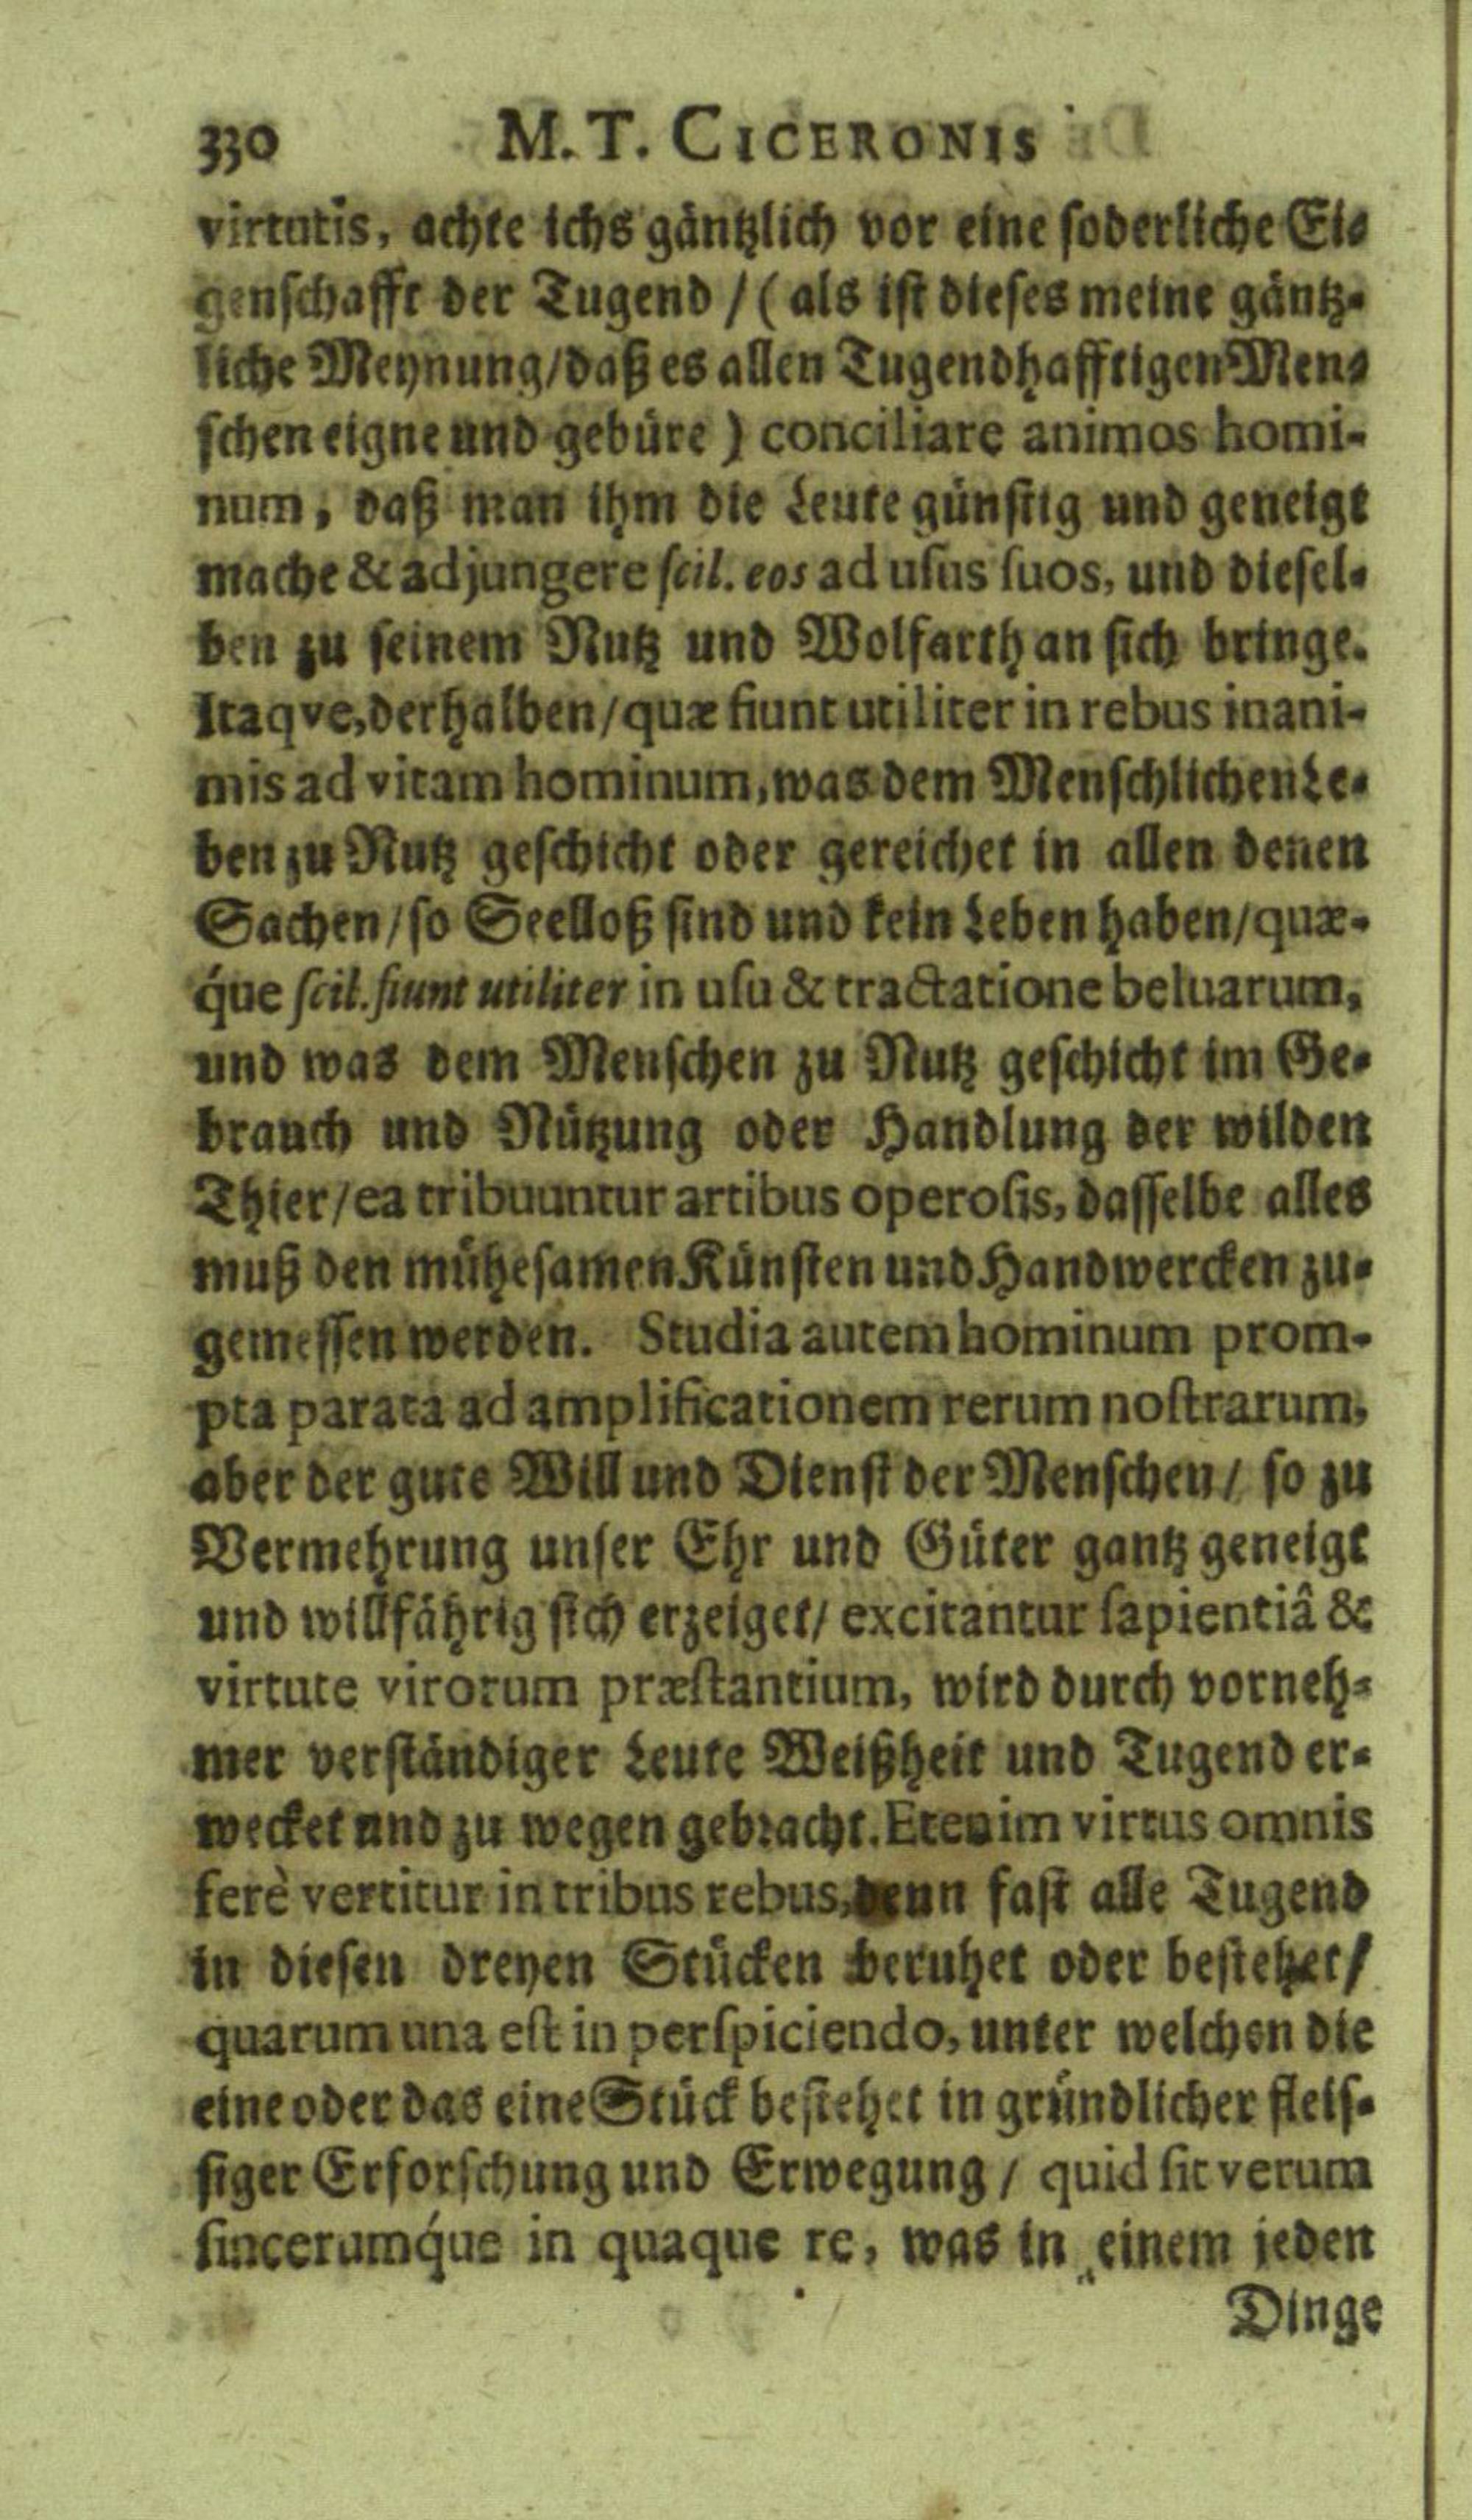 330 M. T. CICERONIS
virtutis, achte ichs gäntzlich vor eine soderliche Ei-
genschafft der Tugend / (als ist dieses meine gäntz-
liche Meynung/daß es allen Tugendhafftigen Men-
schen eigne und gebüre) conciliare animos homi-
num, daß man ihm die Leute günstig und geneigt
mache & adjungere scil. eos ad usus suos, und diesel-
ben zu seinem Nutz und Wolfarth an sich bringe.
Itaqve, derhalben/quæ fiunt utiliter in rebus inani-
mis ad vitam hominum, was dem Menschlichen Le-
ben zu Nutz geschicht oder gereichet in allen denen
Sachen/so Seelloß sind und kein Leben haben/quæ-
q́ue scil. fiunt utiliter in usu & tractatione beluarum,
und was dem Menschen zu Nutz geschicht im Ge-
brauch und Nützung oder Handlung der wilden
Thier/ea tribuuntur artibus operosis, dasselbe alles
muß den mühesamen Künsten und Handwercken zu-
gemessen werden. Studia autem hominum prom-
pta parata ad amplificationem rerum nostrarum,
aber der gute Will und Dienst der Menschen/ so zu
Vermehrung unser Ehr und Güter gantz geneigt
und willfährig sich erzeiget/ excitantur sapientiâ &
virtute virorum præstantium, wird durch vorneh-
mer verständiger Leute Weißheit und Tugend er-
wecket und zu wegen gebracht. Etenim virtus omnis
ferè vertitur in tribus rebus, denn fast alle Tugend
in diesen dreyen Stücken beruhet oder bestehet/
quarum una est in perspiciendo, unter welchen die
eine oder das eine Stück bestehet in gründlicher fleis-
siger Erforschung und Erwegung / quid sit verum
sincerumq́ue in quaque re, was in einem jeden
Dinge